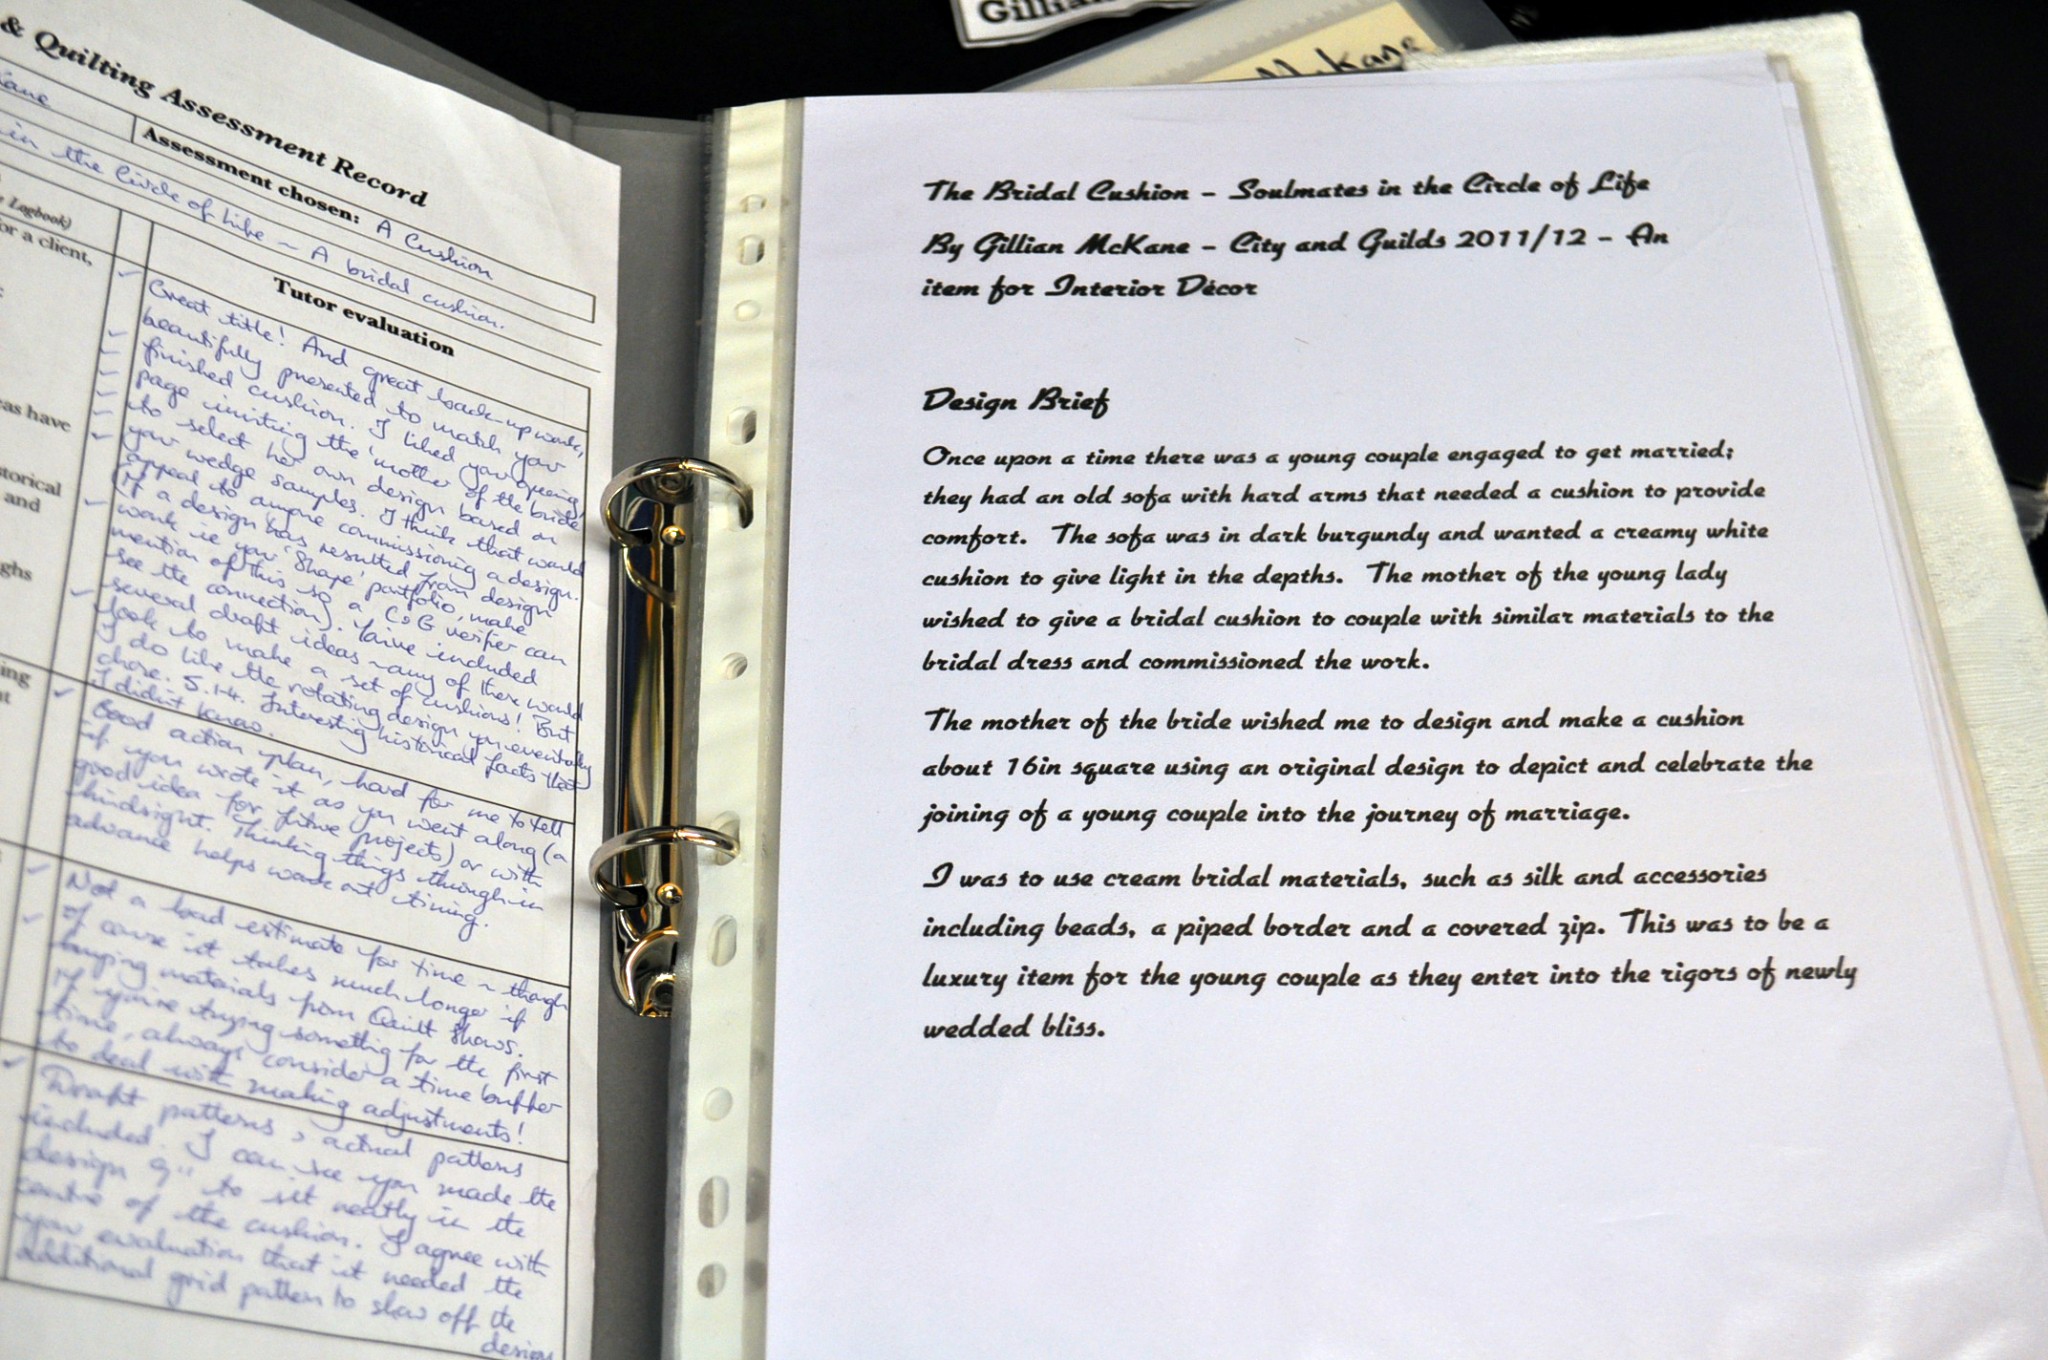 Gillian
McKane
& Quilting Assessment Record
Kane
Assessment chosen: A Cushion
in the Circle of Life ~ A bridal cushion.
Logbook)
for a client,
eas have
storical
and
ghs
ing
Tutor evaluation
Great title! And great back-up work,
beautifully presented to match your
finished cushion. I liked your opening
page inviting the 'mother of the bride'
to select her own design based on
your wedge samples. I think that would
appeal to anyone commissioning a design.
(If a design has resulted from design
work ie your 'Shape' portfolio, make
mention of this so a C&G verifier can
see the connection). You've included
several draft ideas ~ any of these would
look to make a set of cushions! But
I do like the rotating design you eventually
chose. 5.1.4. Interesting historical facts that
I didn't know.
Good action plan, hard for me to tell
if you wrote it as you went along (a
good idea for future projects) or with
hindsight. Thinking things through in
advance helps work out timing.
Not a bad estimate for time ~ though
of course it takes much longer if
buying materials from Quilt Shows.
If you're trying something for the first
time, always consider a time buffer
to deal with making adjustments!
Draft patterns & actual patterns
included. I can see you made the
design 9" to sit neatly in the
centre of the cushion. I agree with
your evaluation that it needed the
additional grid pattern to show off the
design
The Bridal Cushion – Soulmates in the Circle of Life
By Gillian McKane – City and Guilds 2011/12 – An
item for Interior Décor
Design Brief
Once upon a time there was a young couple engaged to get married;
they had an old sofa with hard arms that needed a cushion to provide
comfort. The sofa was in dark burgundy and wanted a creamy white
cushion to give light in the depths. The mother of the young lady
wished to give a bridal cushion to couple with similar materials to the
bridal dress and commissioned the work.
The mother of the bride wished me to design and make a cushion
about 16in square using an original design to depict and celebrate the
joining of a young couple into the journey of marriage.
I was to use cream bridal materials, such as silk and accessories
including beads, a piped border and a covered zip. This was to be a
luxury item for the young couple as they enter into the rigors of newly
wedded bliss.